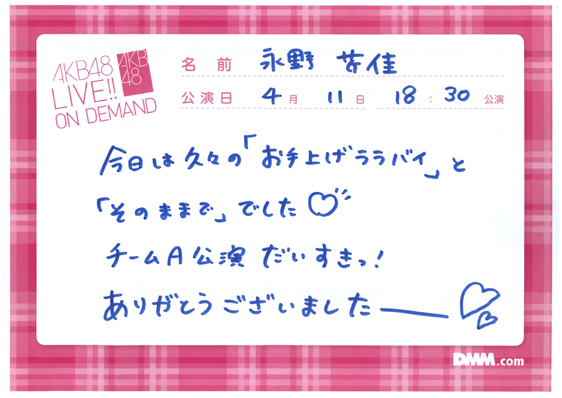 AKB48
LIVE!!
ON DEMAND
AKB
48
名前 永野 芹佳
公演日 4月 11日 18:30 公演
今日は久々の「お手上げララバイ」と
「そのままで」でした
チームA公演 だいすきっ!
ありがとうございました
DMM.com